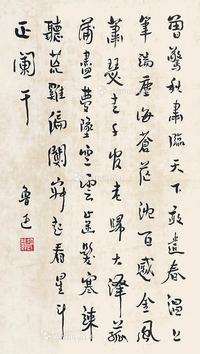 曾驚秋肅臨天下敢遣春温上
筆端塵海蒼茫沈百感金風
蕭瑟走千官老歸大澤菰
蒲盡夢墜空雲齒髮寒竦
聽荒雞偏闃寂起看星斗
正闌干
魯迅